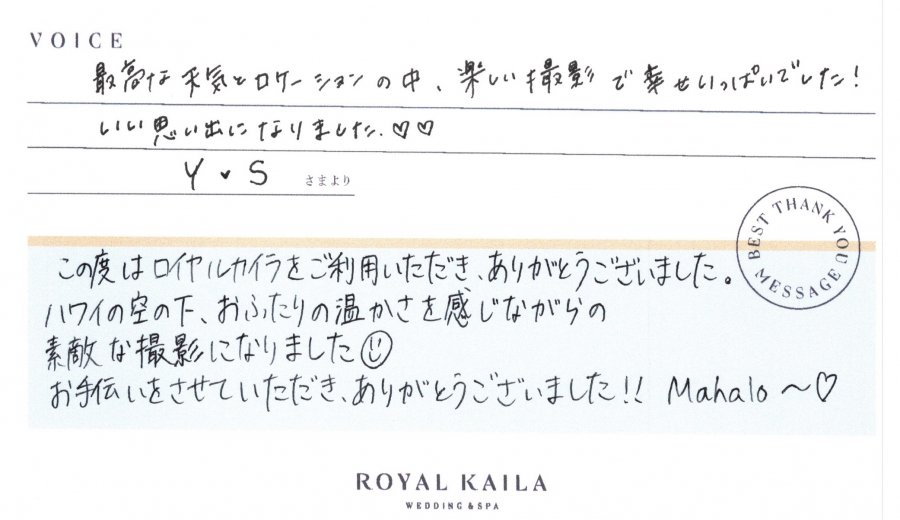 VOICE
最高な天気とロケーションの中、楽しい撮影で幸せいっぱいでした！
いい思い出になりました.♡♡
Y♥S さまより
BEST THANK YOU MESSAGE
この度はロイヤルカイラをご利用いただき、ありがとうございました。
ハワイの空の下、おふたりの温かさを感じながらの
素敵な撮影になりました☺
お手伝いをさせていただき、ありがとうございました!! Mahalo～♡
ROYAL KAILA
WEDDING & SPA